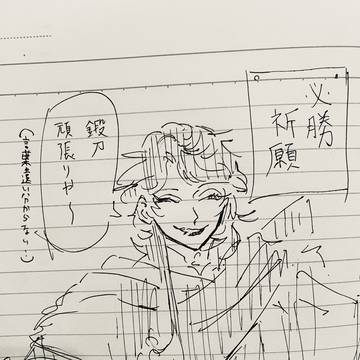 必勝
祈願
鍛刀
頑張りや〜
(言葉遣い分からない…)